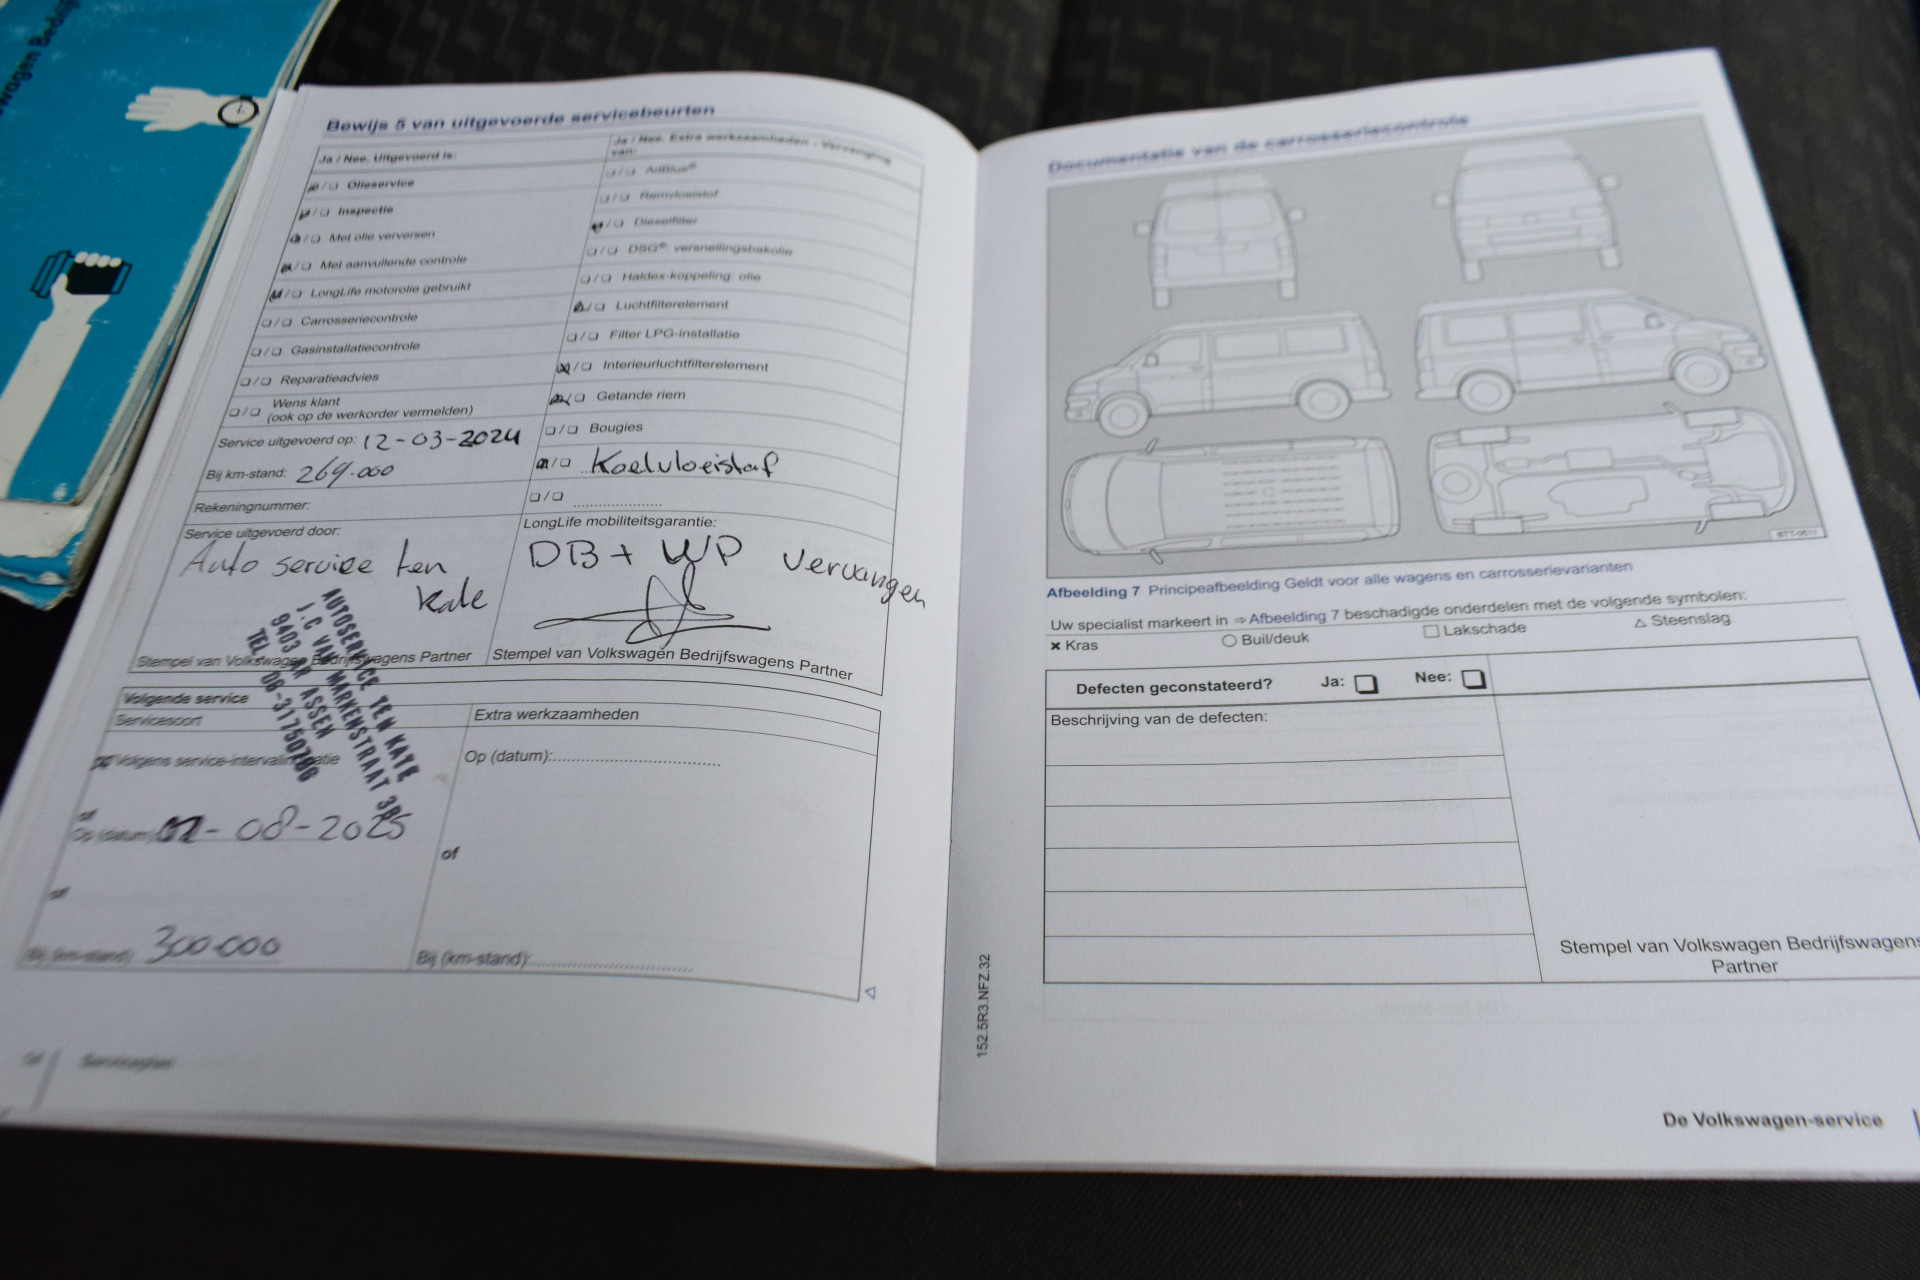 Bewijs 5 van uitgevoerde servicebeurten
Ja / Nee. Uitgevoerd is:
Olieservice
Inspectie
Met olie verversen
Met aanvullende controle
LongLife motorolie gebruikt
Carrosseriecontrole
Gasinstallatiecontrole
Reparatieadvies
Wens klant
(ook op de werkorder vermelden)
Service uitgevoerd op: 12-03-2024
Bij km-stand: 269.000
Rekeningnummer:
Service uitgevoerd door:
Auto service ten
kate
Stempel van Volkswagen Bedrijfswagens Partner
Ja / Nee. Extra werkzaamheden - Vervanging
van:
AdBlue®
Remvloeistof
Dieselfilter
DSG®: versnellingsbakolie
Haldex-koppeling: olie
Luchtfilterelement
Filter LPG-installatie
Interieurluchtfilterelement
Getande riem
Bougies
Koelvloeistof
LongLife mobiliteitsgarantie:
DB + WP vervangen
Stempel van Volkswagen Bedrijfswagens Partner
AUTOSERVICE TEN KATE
J.C VAN MARKENSTRAAT 3B
9403 AR ASSEN
Volgende service
Servicesoort
Volgens service-intervalindicatie
of
Op (datum) 02-08-2025
of
Bij (km-stand) 300.000
Extra werkzaamheden
Op (datum):
of
Bij (km-stand):
Serviceplan
Documentatie van de carrosseriecontrole
Afbeelding 7 Principeafbeelding Geldt voor alle wagens en carrosserievarianten
Uw specialist markeert in ⇒ Afbeelding 7 beschadigde onderdelen met de volgende symbolen:
× Kras ○ Buil/deuk □ Lakschade △ Steenslag
Defecten geconstateerd? Ja: Nee:
Beschrijving van de defecten:
Stempel van Volkswagen Bedrijfswagens
Partner
152.5R3.NFZ.32
De Volkswagen-service